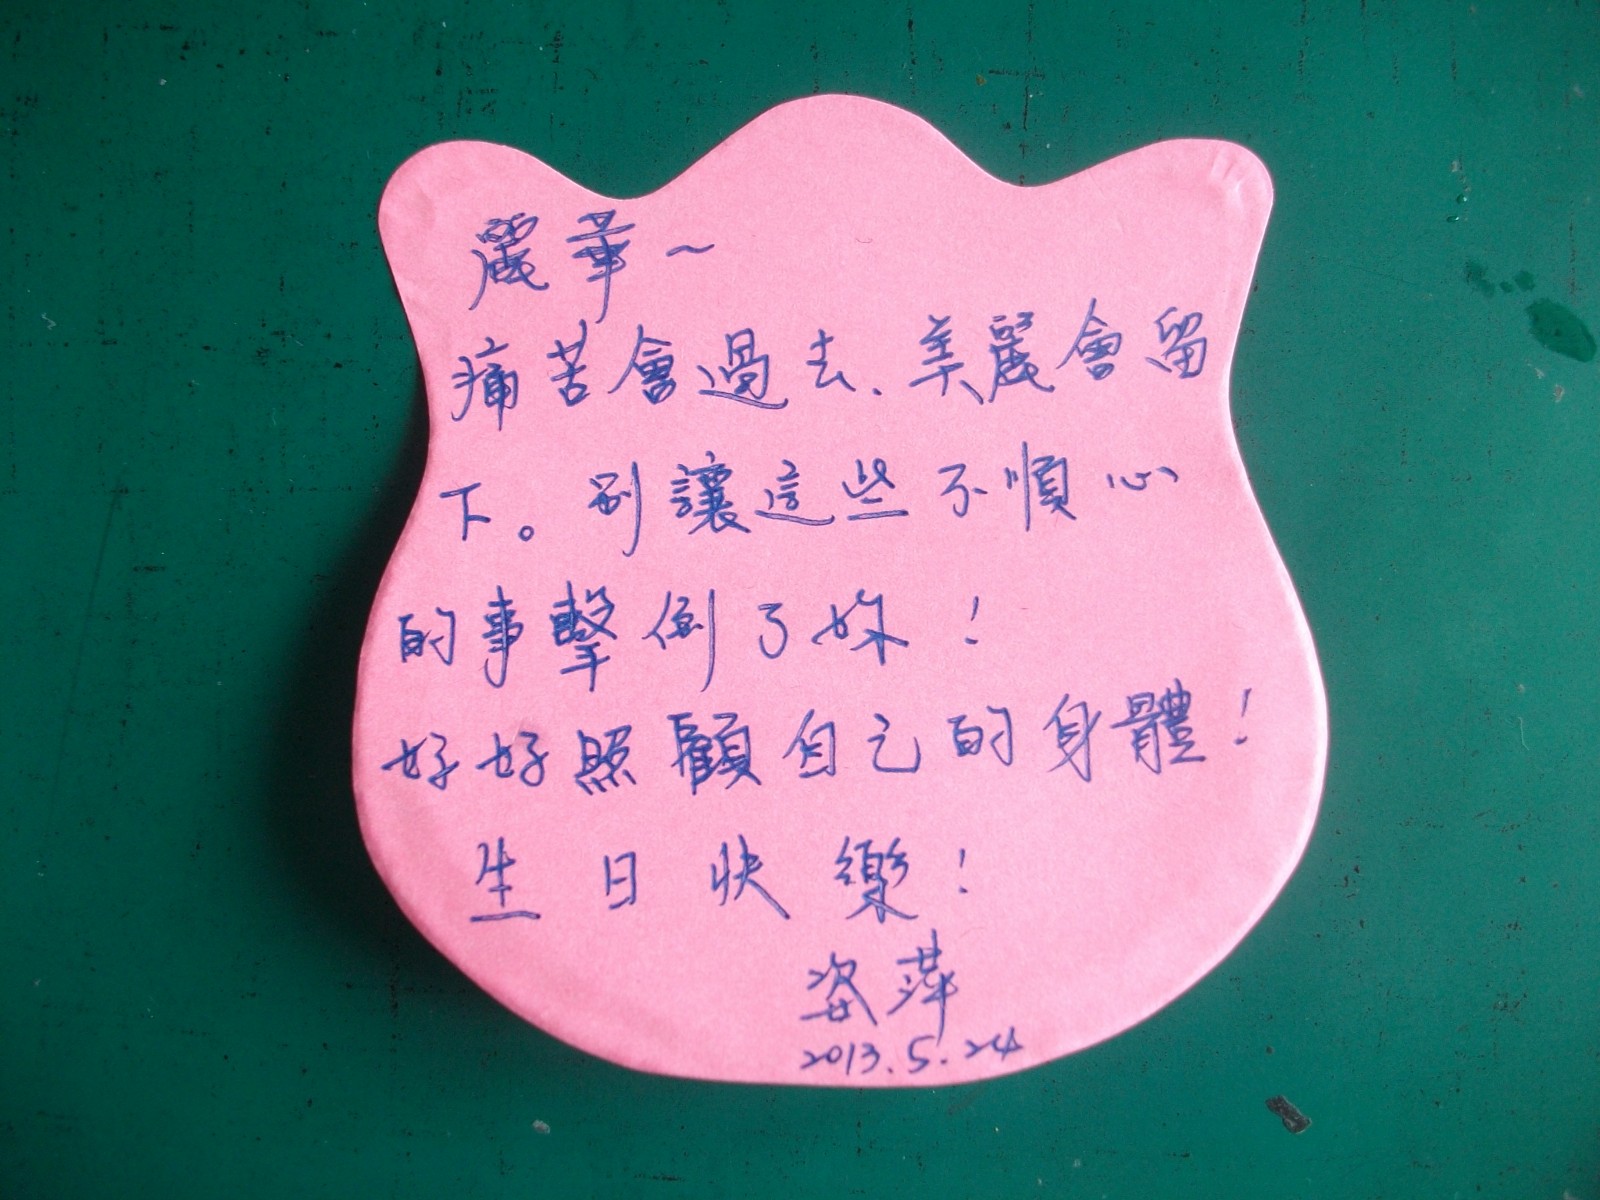 麗華~
痛苦會過去、美麗會留
下。別讓這些不順心
的事擊倒了妳!
好好照顧自己的身體!
生日快樂!
姿萍
2013.5.24